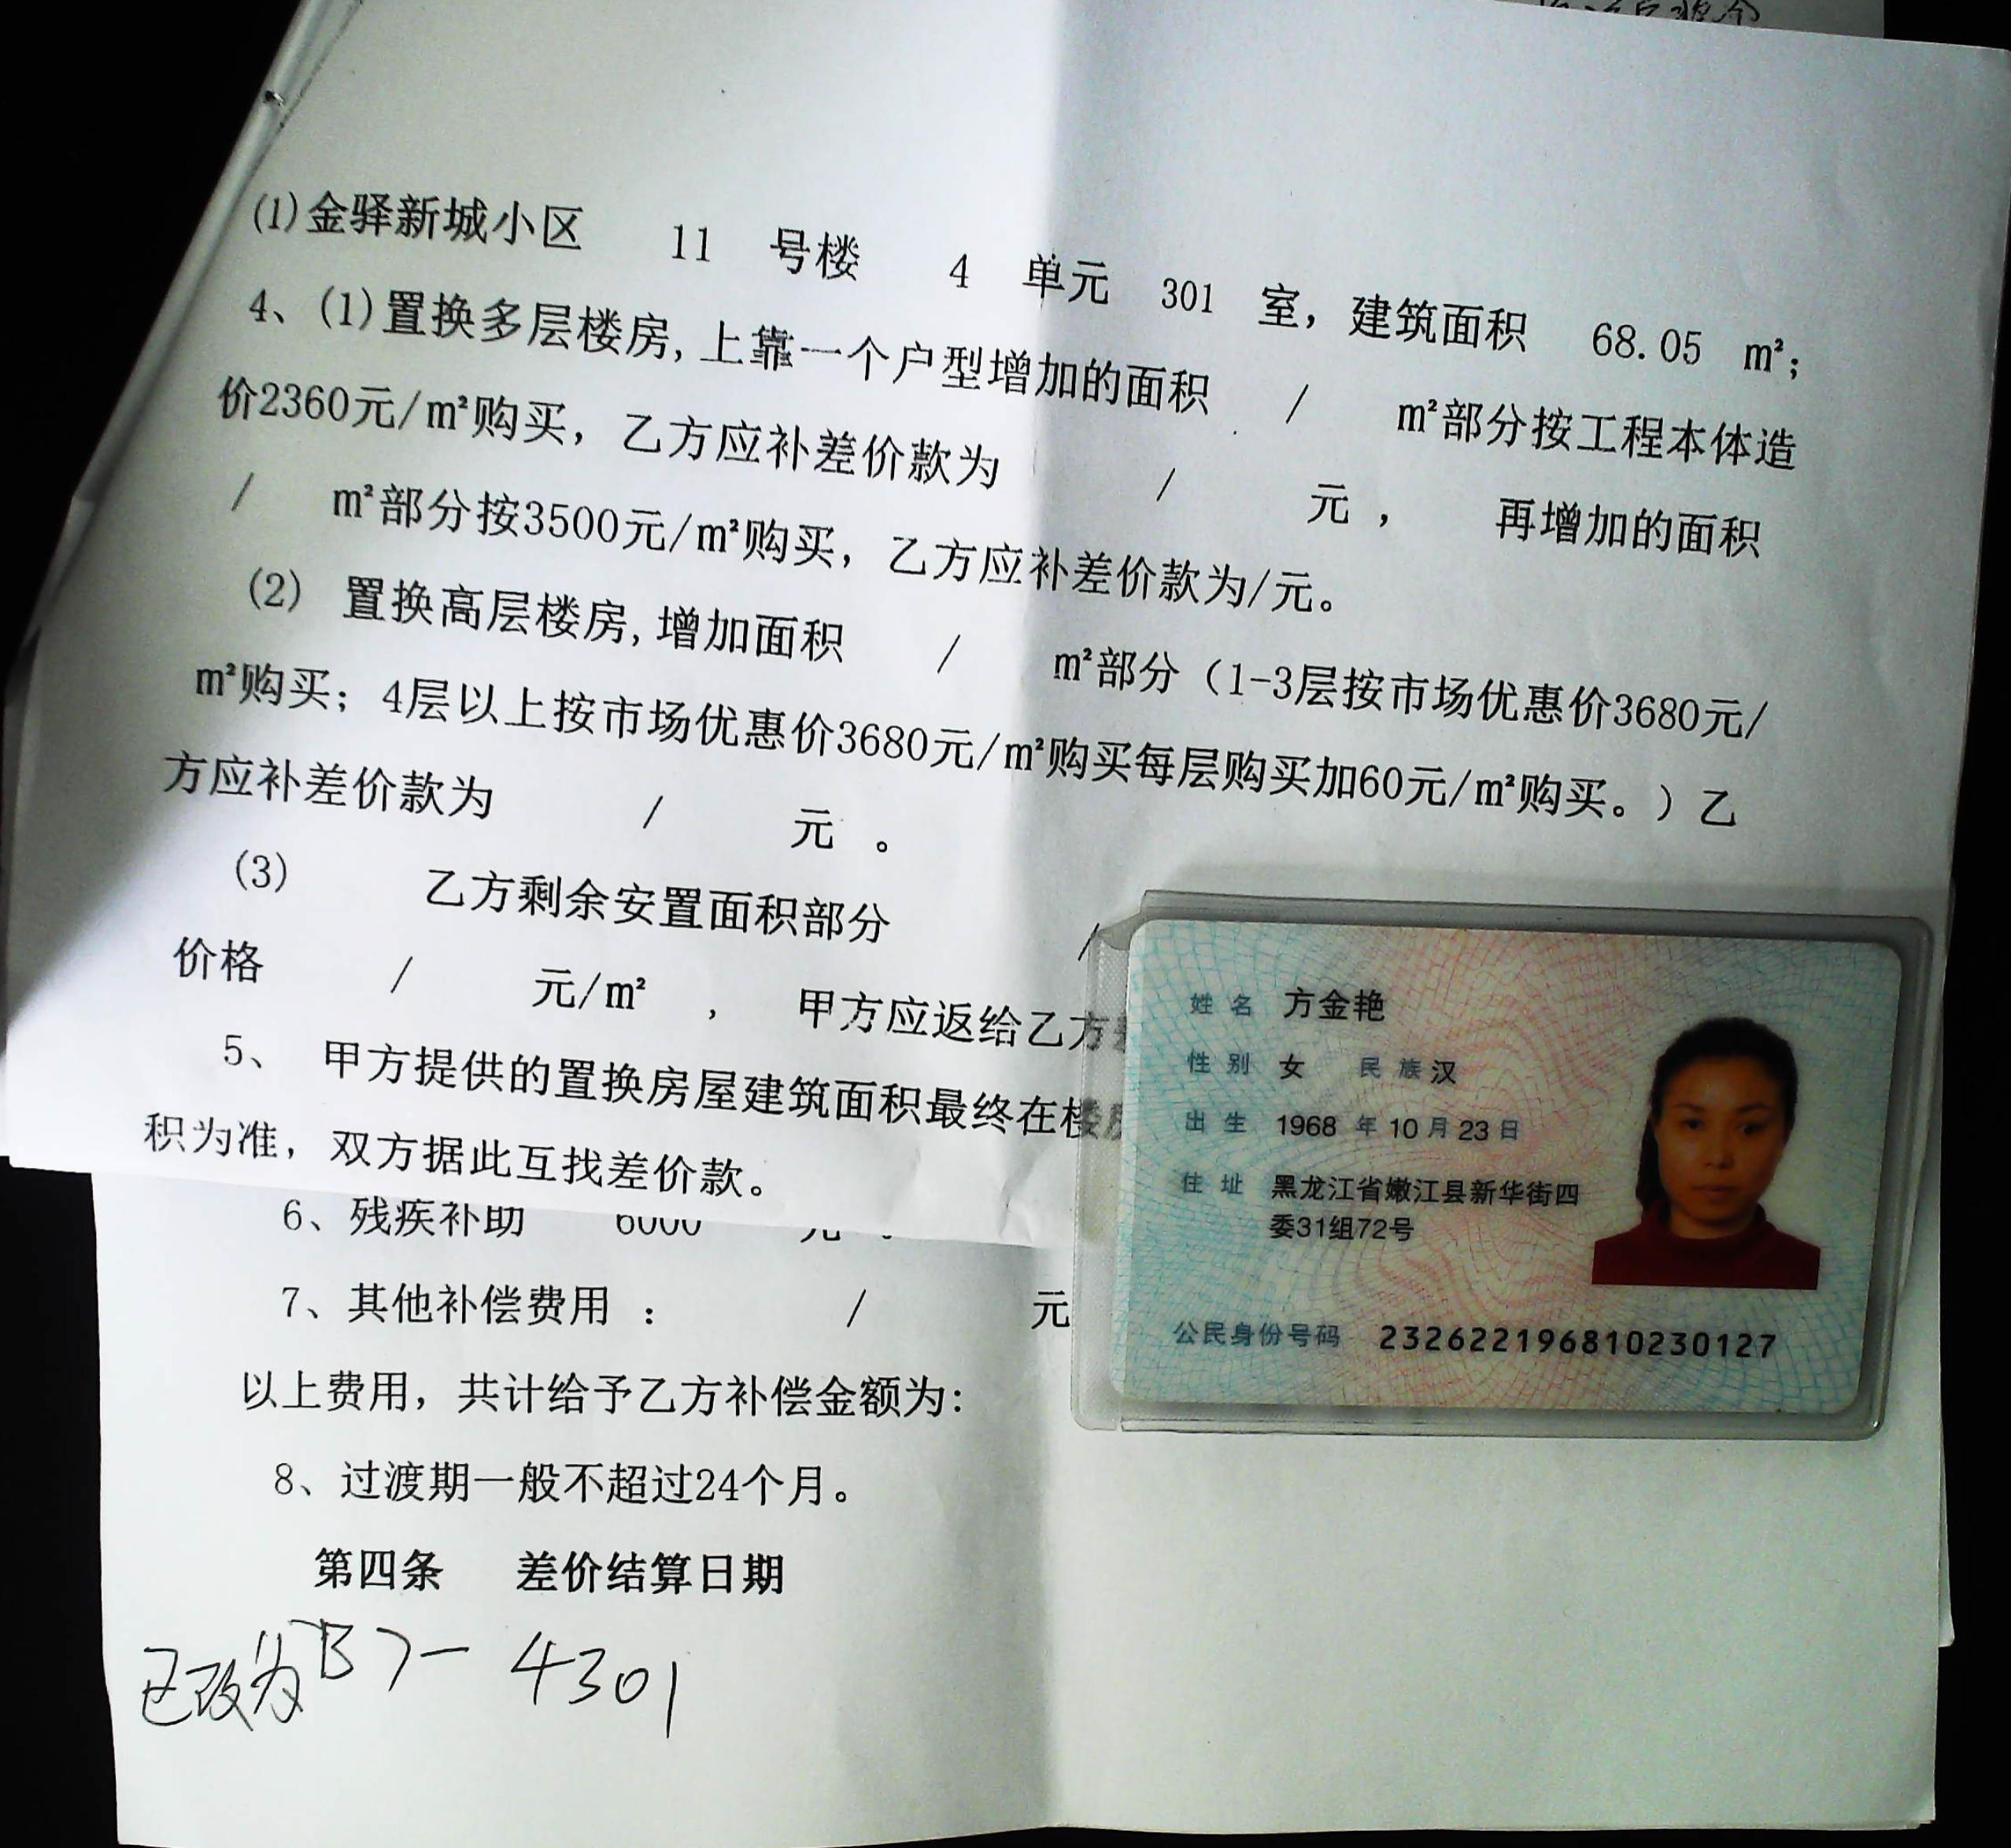 (1)金驿新城小区 11 号楼 4 单元 301 室，建筑面积 68.05 m²；
4、(1)置换多层楼房,上靠一个户型增加的面积 / m²部分按工程本体造
价2360元/m²购买，乙方应补差价款为 / 元 ， 再增加的面积
/ m²部分按3500元/m²购买，乙方应补差价款为/元。
(2) 置换高层楼房,增加面积 / m²部分（1-3层按市场优惠价3680元/
m²购买；4层以上按市场优惠价3680元/m²购买每层购买加60元/m²购买。）乙
方应补差价款为 / 元 。
(3) 乙方剩余安置面积部分 /
价格 / 元/m² ， 甲方应返给乙方
5、 甲方提供的置换房屋建筑面积最终在楼
积为准，双方据此互找差价款。
6、残疾补助 6000 元 。
7、其他补偿费用 ： / 元
以上费用，共计给予乙方补偿金额为:
8、过渡期一般不超过24个月。
第四条 差价结算日期
已改为B7-4301
姓名 方金艳
性别 女 民族 汉
出生 1968 年 10 月 23 日
住址 黑龙江省嫩江县新华街四
委31组72号
公民身份号码 232622196810230127